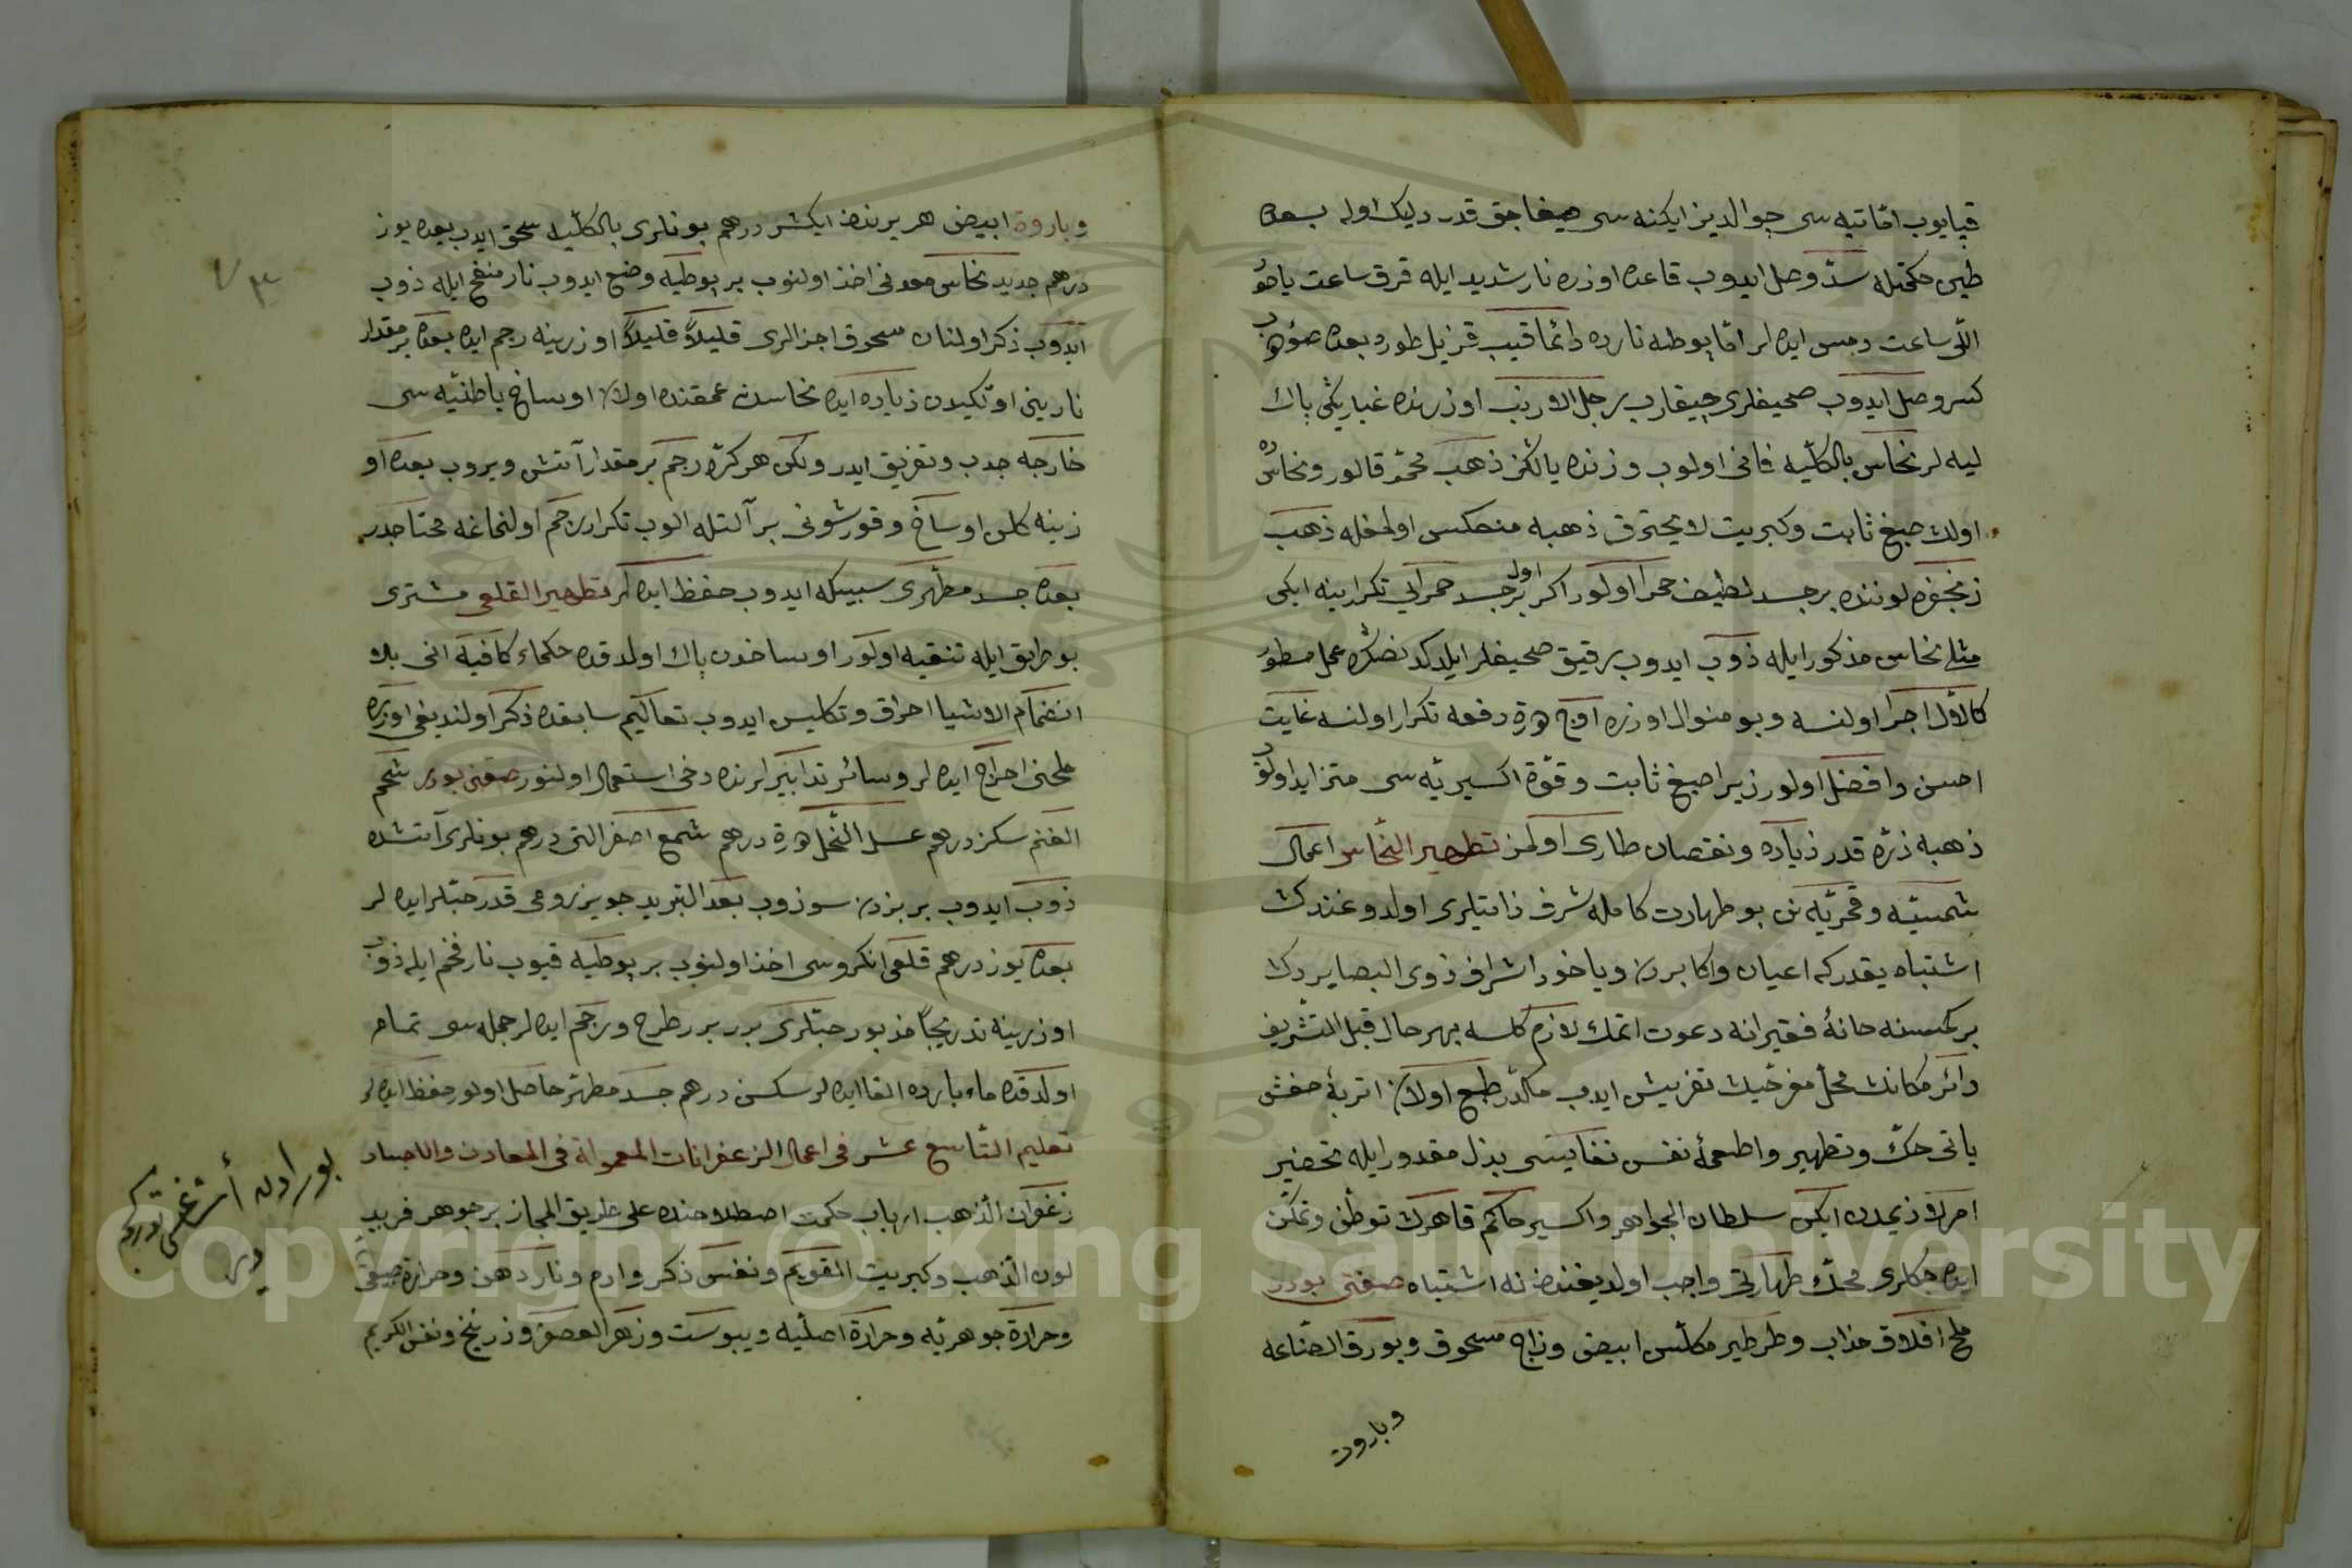 قپايوب اما تپه سى جوالديز ايكنه سى صيغاجق قدر دليك اوله بعده
طين حكمتله سدّ وصل ايدوب قاعده اوزره نار شديد ايله قرق ساعت ياخود
اللّى ساعت دمس ايده لر امّا پوطه نارده دائما قيب قزيل طوره بعده صؤيوب
كسر وصل ايدوب صحيفلرى چيقارب اوزرنده غبار پاك
ليه لر نحاس بالكلّيه فانى اولوب وزنده يالكز ذهب محمّر قالور ونحاسده
اولك صبغ ثابت وكبريت لا يحترق ذهبه منعكس اولمغله ذهب
زنجفره لوننده بر جسد لطيف حمرا اولور اكر اول بر جسد حمرايى تكرار ينه ايكى
مثلى نحاس مذكور ايله ذوب ايدوب رقيق صحيفلر ايلدكدنصكره عمل مسطور
كالاوّل اجرا اولنسه وبو منوال اوزره اوچ دفعه تكرار اولنسه غايت
احسن وافضل اولور زيرا صبغ ثابت وقوّة اكسيريّه سى متزايد اولوب
ذهبه ذرّه قدر زياده ونقصان طارى اولمز تطهير النّحاس اعمال
شمسيّه وقمريّه نك بو طهارت كامله شرف ذاتيلرى اولدوغندك
اشتباه يقدركه اعيان واكابردن وياخود اشراف ذوى البصايردن
بر كمسنه خانهٔ فقيرانه دعوت اتمك لازم كلسه بهر حال قبل التشريف
دائر مكانك محلّ مفرحيك تفريش ايدب مكدّر طبع اولان اتربهٔ
ياتى حكّ وتطهير واطعمهٔ نفس نفايسى بذل مقدور ايله تحضير
امر لازيمدن ايكن سلطان الجواهر واكسير حاكم قاهرك توطّن وتمكّن
ايده جكلرى محلّك طهارتى واجب اولديغنده نه اشتباه صفتى بودر
ملح افلاق مذاب وطرطير مكلّس ابيض وزاج مسحوق وبورق الصّناعه
وباروت
وباروت ابيض هر برندن ايكيشر درهم بونلرى بالكلّيه سحق ايدب بعده يوز
درهم جديد نحاس معدنى اخذ اولنوب بر پوطيه وضع ايدوب نار منفخ ايله ذوب
ايدوب ذكر اولنان مسحوق اجزالرى قليلاً قليلاً اوزرينه رجم ايده بعده بر مقدار
نارينى اوّلكيدن زياده ايده نحاسك عمقنده اولان اوساخ باطنيّه سى
خارجه جذب وتفريق ايدر ولكن هر كرّه رجم بر مقدار آتش ويروب بعده او
زرينه كلن اوساخ وقورشونى بر آلتله الوب تكرار رجم اولنماغه محتاجدر
بعده جسد مطهّرى سبيكه ايدوب حفظ ايده لر تطهير القلعى مشترى
بو طريق ايله تنقيه اولور اوساخدن پاك اولدقده حكماء كافيه انى بلا
انضمام الاشيا احراق وتكليس ايدوب تعاليم سابقده ذكر اولنديغى اوزره
ملحنى اخراج ايده لر وسائر تدابيرلرنده دخى استعمال اولنور صفتى بودر شحم
الغنم سكز درهم عسل النّحل درهم شمع اصفر التى درهم بونلرى آتشده
ذوب ايدوب بر بزدن سوزوب بعد التبريد جويز رومى قدر حبّلر ايده لر
بعده يوز درهم قلعى انكروسى اخذ اولنوب بر پوطيه قيوب نار فخم ايله ذوب
اوزرينه تدريجاً مذبور حبّلرى برر برر طرح ورجم ايده لر جمله سى تمام
اولدقده ماء بارده القا ايده لر سكسن درهم جسد مطهّر حاصل اولور حفظ ايده لر
تعليم التّاسع عشر فى اعمال الزعفرانات المعمولة فى المعادن والاجساد
زعفران الذّهب ارباب حكمت اصطلاحنده على طريق المجاز بر جوهر فريد
لون الذّهب وكبريت القويم ونفس ذكر وادم ونار دهن وحرارة
وحرارة جوهريّه وحرارة اصليّه ويبوست وزهر العصفر وزرنيخ ونفس الكريم